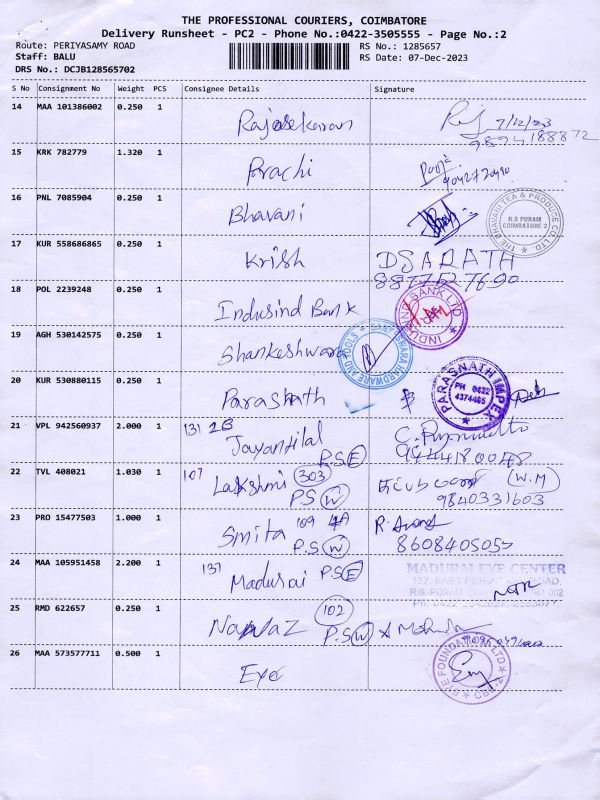 THE PROFESSIONAL COURIERS, COIMBATORE
Delivery Runsheet - PC2 - Phone No.:0422-3505555 - Page No.:2
Route: PERIYASAMY ROAD
RS No.: 1285657
Staff: BALU
RS Date: 07-Dec-2023
DRS No.: DCJB128565702
S No Consignment No Weight PCS Consignee Details Signature
14 MAA 101386002 0.250 1 Rajasekaran 7/12/23
9894188872
15 KRK 782779 1.320 1 Prachi
16 PNL 7085904 0.250 1 Bhavani
THE BHAVANI TEA & PRODUCE CO. LTD.
R.S PURAM
COIMBATORE-2
17 KUR 558686865 0.250 1 Krish DSARATH
18 POL 2239248 0.250 1 Indusind Bank
INDUSIND BANK LTD
19 AGH 530142575 0.250 1 Shankeshwara
HARDWARE AND TOOLS
20 KUR 530880115 0.250 1 Parasnath
PARASNATH IMPEX
PH 0422
4374465
21 VPL 942560937 2.000 1 131 2B Jayantilal
R.S E
22 TVL 408021 1.030 1 107 Lakshmi 303 (W.M)
P.S W 9840331603
23 PRO 15477503 1.000 1 Smita 109 4A
P.S W 8608405055
24 MAA 105951458 2.200 1 137 Madurai P.S E
MADURAI EYE CENTER
137, EAST ROAD,
R.S. PURAM
25 RMD 622657 0.250 1 Nawaz 102
P.S W
26 MAA 573577711 0.500 1 Eye
EYE FOUNDATION LTD